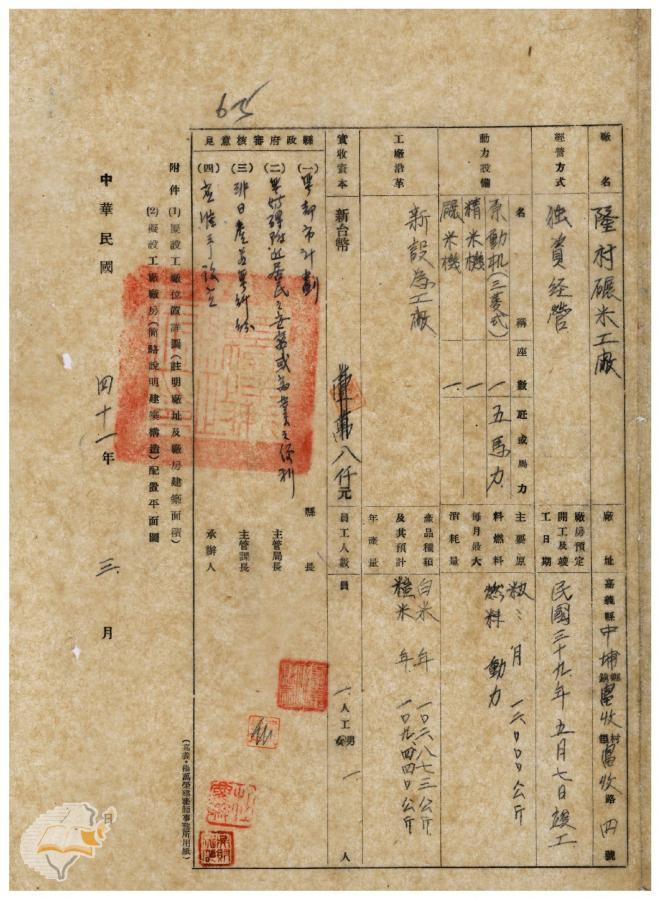 廠名 隆村碾米工廠
廠址 嘉義縣中埔鄉鎮富收村里富收路四號
經營方式 獨資經營
廠房預定開工及竣工日期 民國三十九年五月七日竣工
動力設備
名稱 座數 ��或馬力
原動机(三菱式) 一 五馬力
精米機 一
碾米機 一
主要原料燃料每月最大消耗量
籾：月 一六〇〇〇公斤
燃料 動力
工廠沿革 新設為工廠
產品種類及其預計年產量
白米 年 一〇六八七三公斤
糙米 年 一〇九四四〇公斤
實收資本 新台幣 萬八仟元
員工人數 員 一人 工 男女 一人
縣政府審核意見
(一)無都市計劃
(二)無妨碍附近居民之安寧或為業之便利
(三)
(四)應准予設立
縣長
主管局長
主管課長
承辦人
附件 (1)擬設工廠位置詳圖(註明廠址及廠房建築面積)
(2)擬設工廠廠房(簡略說明建築構造)配置平面圖
中華民國 四十一年 三月 日
(嘉義·楊萬榮建築師事務所用紙)